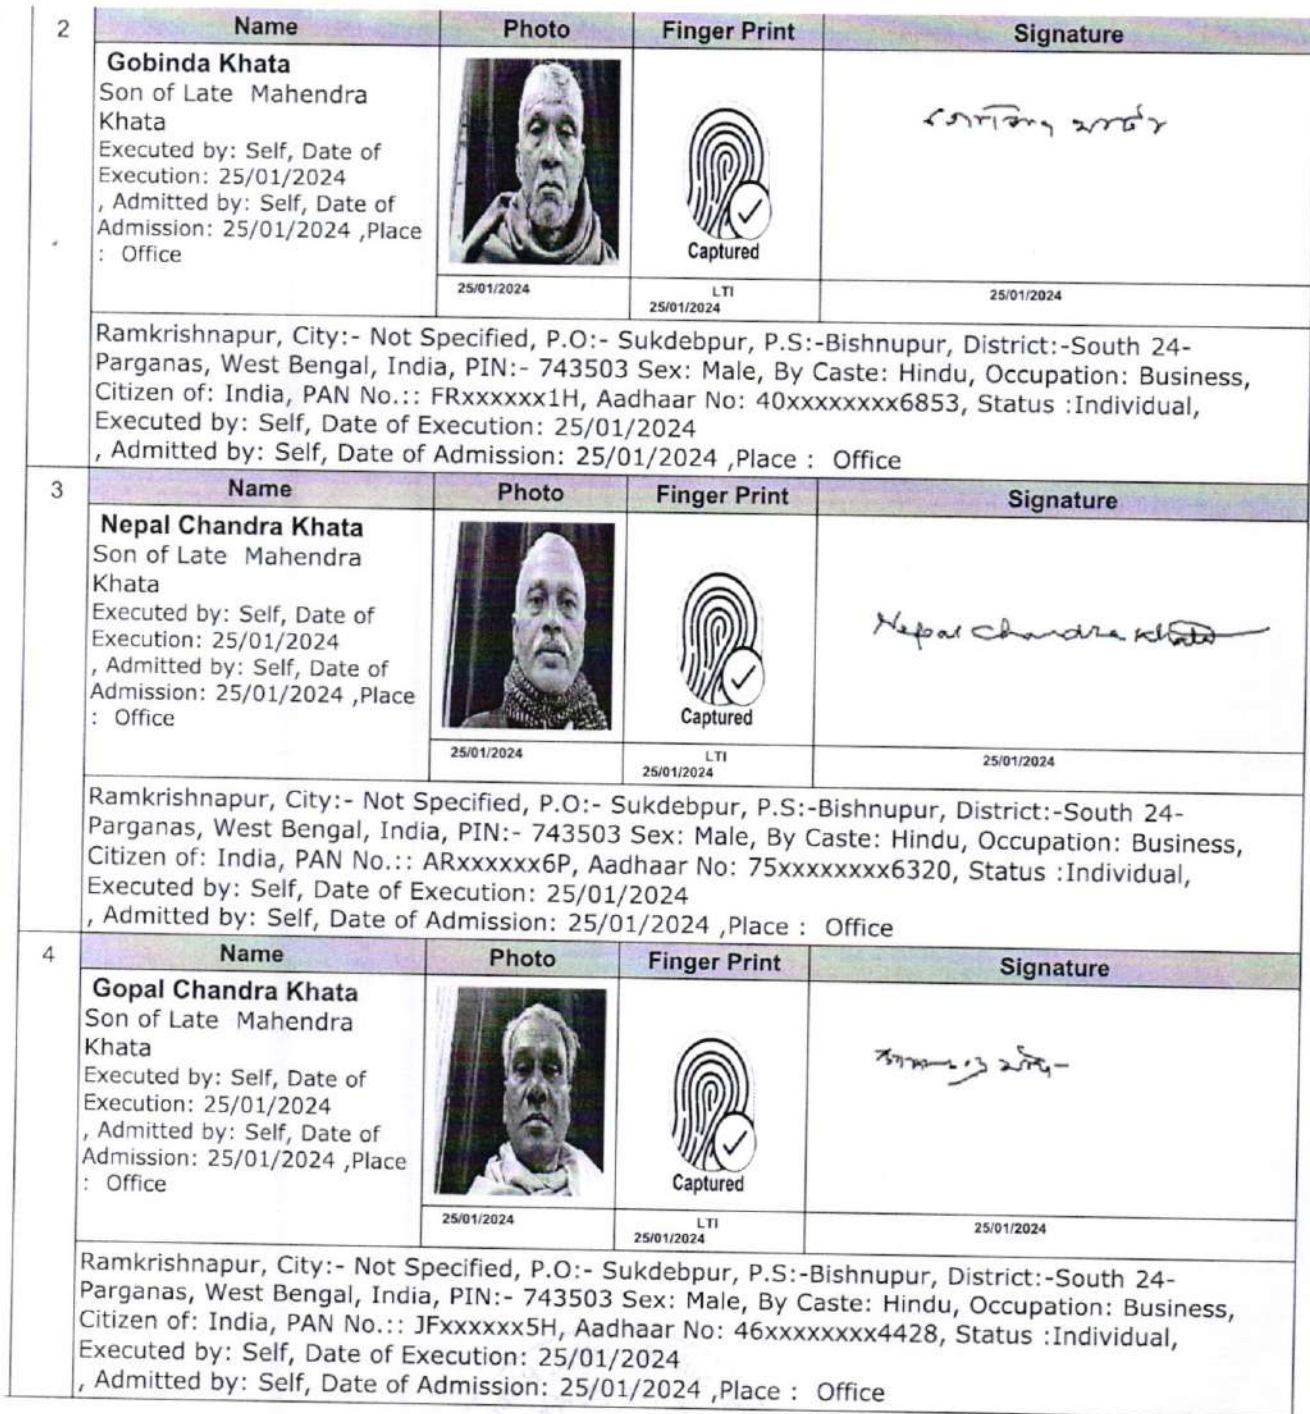 2
Name Photo Finger Print Signature
Gobinda Khata
Son of Late Mahendra
Khata
Executed by: Self, Date of
Execution: 25/01/2024
, Admitted by: Self, Date of
Admission: 25/01/2024 ,Place
: Office
Captured
25/01/2024
LTI
25/01/2024
25/01/2024
Ramkrishnapur, City:- Not Specified, P.O:- Sukdebpur, P.S:-Bishnupur, District:-South 24-
Parganas, West Bengal, India, PIN:- 743503 Sex: Male, By Caste: Hindu, Occupation: Business,
Citizen of: India, PAN No.:: FRxxxxxx1H, Aadhaar No: 40xxxxxxxx6853, Status :Individual,
Executed by: Self, Date of Execution: 25/01/2024
, Admitted by: Self, Date of Admission: 25/01/2024 ,Place : Office
3
Name Photo Finger Print Signature
Nepal Chandra Khata
Son of Late Mahendra
Khata
Executed by: Self, Date of
Execution: 25/01/2024
, Admitted by: Self, Date of
Admission: 25/01/2024 ,Place
: Office
Captured
Nepal Chandra Khata
25/01/2024
LTI
25/01/2024
25/01/2024
Ramkrishnapur, City:- Not Specified, P.O:- Sukdebpur, P.S:-Bishnupur, District:-South 24-
Parganas, West Bengal, India, PIN:- 743503 Sex: Male, By Caste: Hindu, Occupation: Business,
Citizen of: India, PAN No.:: ARxxxxxx6P, Aadhaar No: 75xxxxxxxx6320, Status :Individual,
Executed by: Self, Date of Execution: 25/01/2024
, Admitted by: Self, Date of Admission: 25/01/2024 ,Place : Office
4
Name Photo Finger Print Signature
Gopal Chandra Khata
Son of Late Mahendra
Khata
Executed by: Self, Date of
Execution: 25/01/2024
, Admitted by: Self, Date of
Admission: 25/01/2024 ,Place
: Office
Captured
25/01/2024
LTI
25/01/2024
25/01/2024
Ramkrishnapur, City:- Not Specified, P.O:- Sukdebpur, P.S:-Bishnupur, District:-South 24-
Parganas, West Bengal, India, PIN:- 743503 Sex: Male, By Caste: Hindu, Occupation: Business,
Citizen of: India, PAN No.:: JFxxxxxx5H, Aadhaar No: 46xxxxxxxx4428, Status :Individual,
Executed by: Self, Date of Execution: 25/01/2024
, Admitted by: Self, Date of Admission: 25/01/2024 ,Place : Office